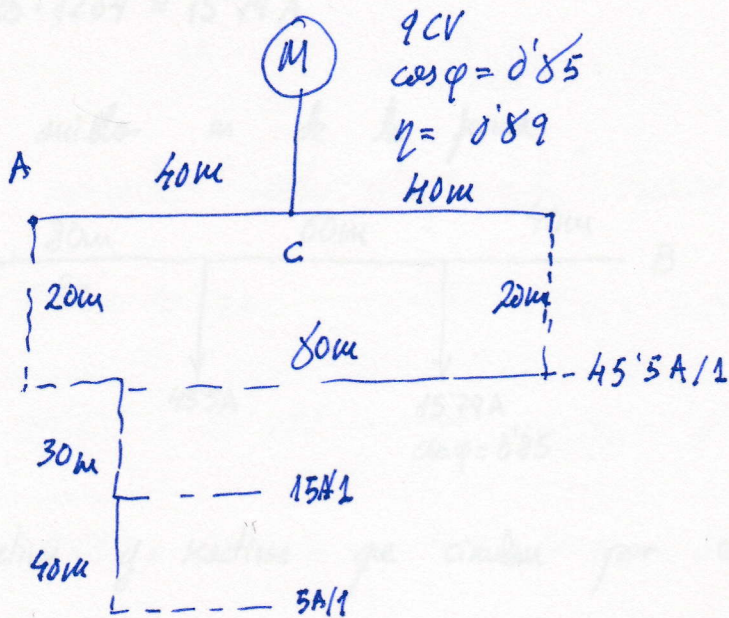 M
9CV
cos φ = 0'85
η = 0'89
A
40m
40m
C
20m
20m
80m
45'5A/1
30m
15A/1
40m
5A/1